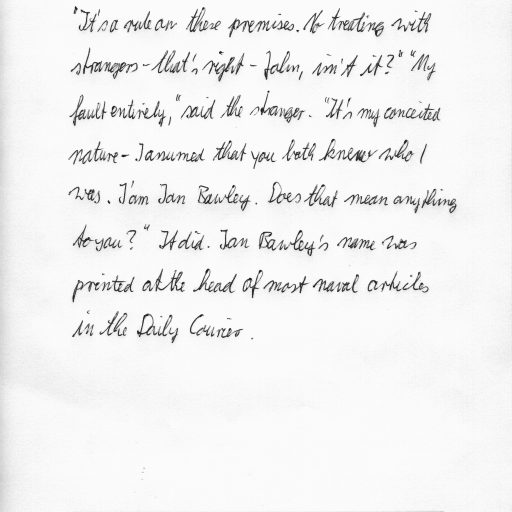 "It's a rule on these premises. No treating with
strangers - that's right - John, isn't it?" "My
fault entirely," said the stranger. "It's my conceited
nature - I assumed that you both knew who I
was. I'am Ian Bawley. Does that mean anything
to you?" It did. Ian Bawley's name was
printed at the head of most naval articles
in the Daily Courier.